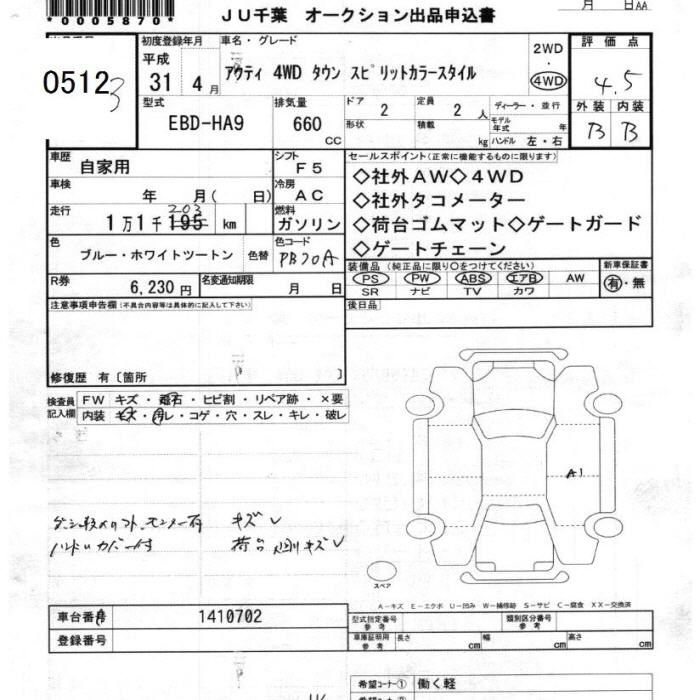 *0005870*
JU千葉 オークション出品申込書
月 日AA
05123
初度登録年月
平成
31 4 月
車名・グレード
アクティ 4WD タウン スピリットカラースタイル
2WD
・
4WD
評価点
4.5
型式
EBD-HA9
排気量
660
CC
ドア 2
形状
定員 2 人
積載 kg
ディーラー・並行
モデル年式 年
ハンドル 左・右
外装 内装
B B
車歴
自家用
シフト
F5
セールスポイント(正常に機能するものに限ります)
◇社外AW◇4WD
◇社外タコメーター
◇荷台ゴムマット◇ゲートガード
◇ゲートチェーン
車検
年 月( 日)
冷房
AC
走行
1万1千195 km
203
燃料
ガソリン
色
ブルー・ホワイトツートン
色替
色コード
PB70A
装備品(純正品に限り○をつけてください)
PS PW ABS エアB AW
SR ナビ TV カワ
新車保証書
有・無
R券
6,230円
名変通知期限
月 日
後日品
注意事項申告欄(不具合内容等は具体的に記入して下さい)
修復歴 有〔箇所 〕
検査員
記入欄
FW キズ・飛石・ヒビ割・リペア跡・×要
内装 キズ・汚レ・コゲ・穴・スレ・キレ・破レ
A1
キズ
ハンドルカバー付
荷台
キズ
スペア
A-キズ E-エクボ U-凹み W-補修跡 S-サビ C-腐食 XX-交換済
車台番号
1410702
登録番号
型式指定番号
参考
類別区分番号
参考
車庫証明用
参考
長さ cm
幅 cm
高さ cm
希望コーナー① 働く軽
希望コーナー②